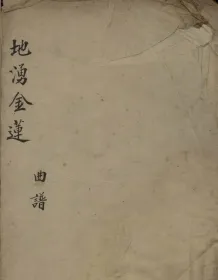 地湧金蓮
曲譜